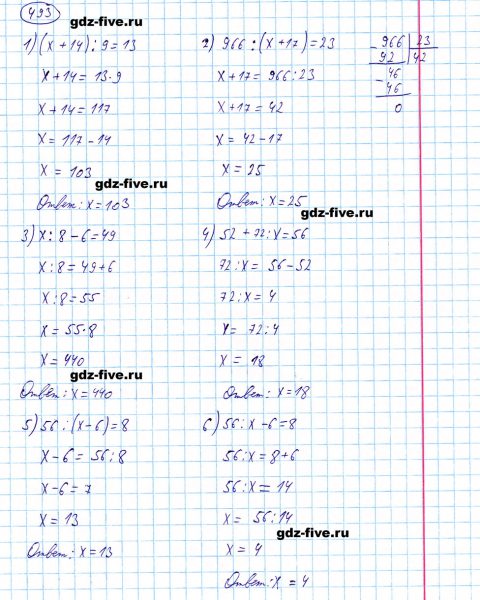 493
gdz-five.ru
1) (x + 14) : 9 = 13
x + 14 = 13·9
x + 14 = 117
x = 117 - 14
x = 103
gdz-five.ru
Ответ: x = 103
2) 966 : (x + 17) = 23
x + 17 = 966 : 23
x + 17 = 42
x = 42 - 17
x = 25
Ответ: x = 25
gdz-five.ru
- 966 | 23
92 | 42
- 46
46
0
3) x : 8 - 6 = 49
x : 8 = 49 + 6
x : 8 = 55
x = 55·8
x = 440
gdz-five.ru
Ответ: x = 440
4) 52 + 72 : x = 56
72 : x = 56 - 52
72 : x = 4
x = 72 : 4
x = 18
Ответ: x = 18
5) 56 : (x - 6) = 8
x - 6 = 56 : 8
x - 6 = 7
x = 13
Ответ: x = 13
6) 56 : x - 6 = 8
56 : x = 8 + 6
56 : x = 14
x = 56 : 14
gdz-five.ru
x = 4
Ответ: x = 4